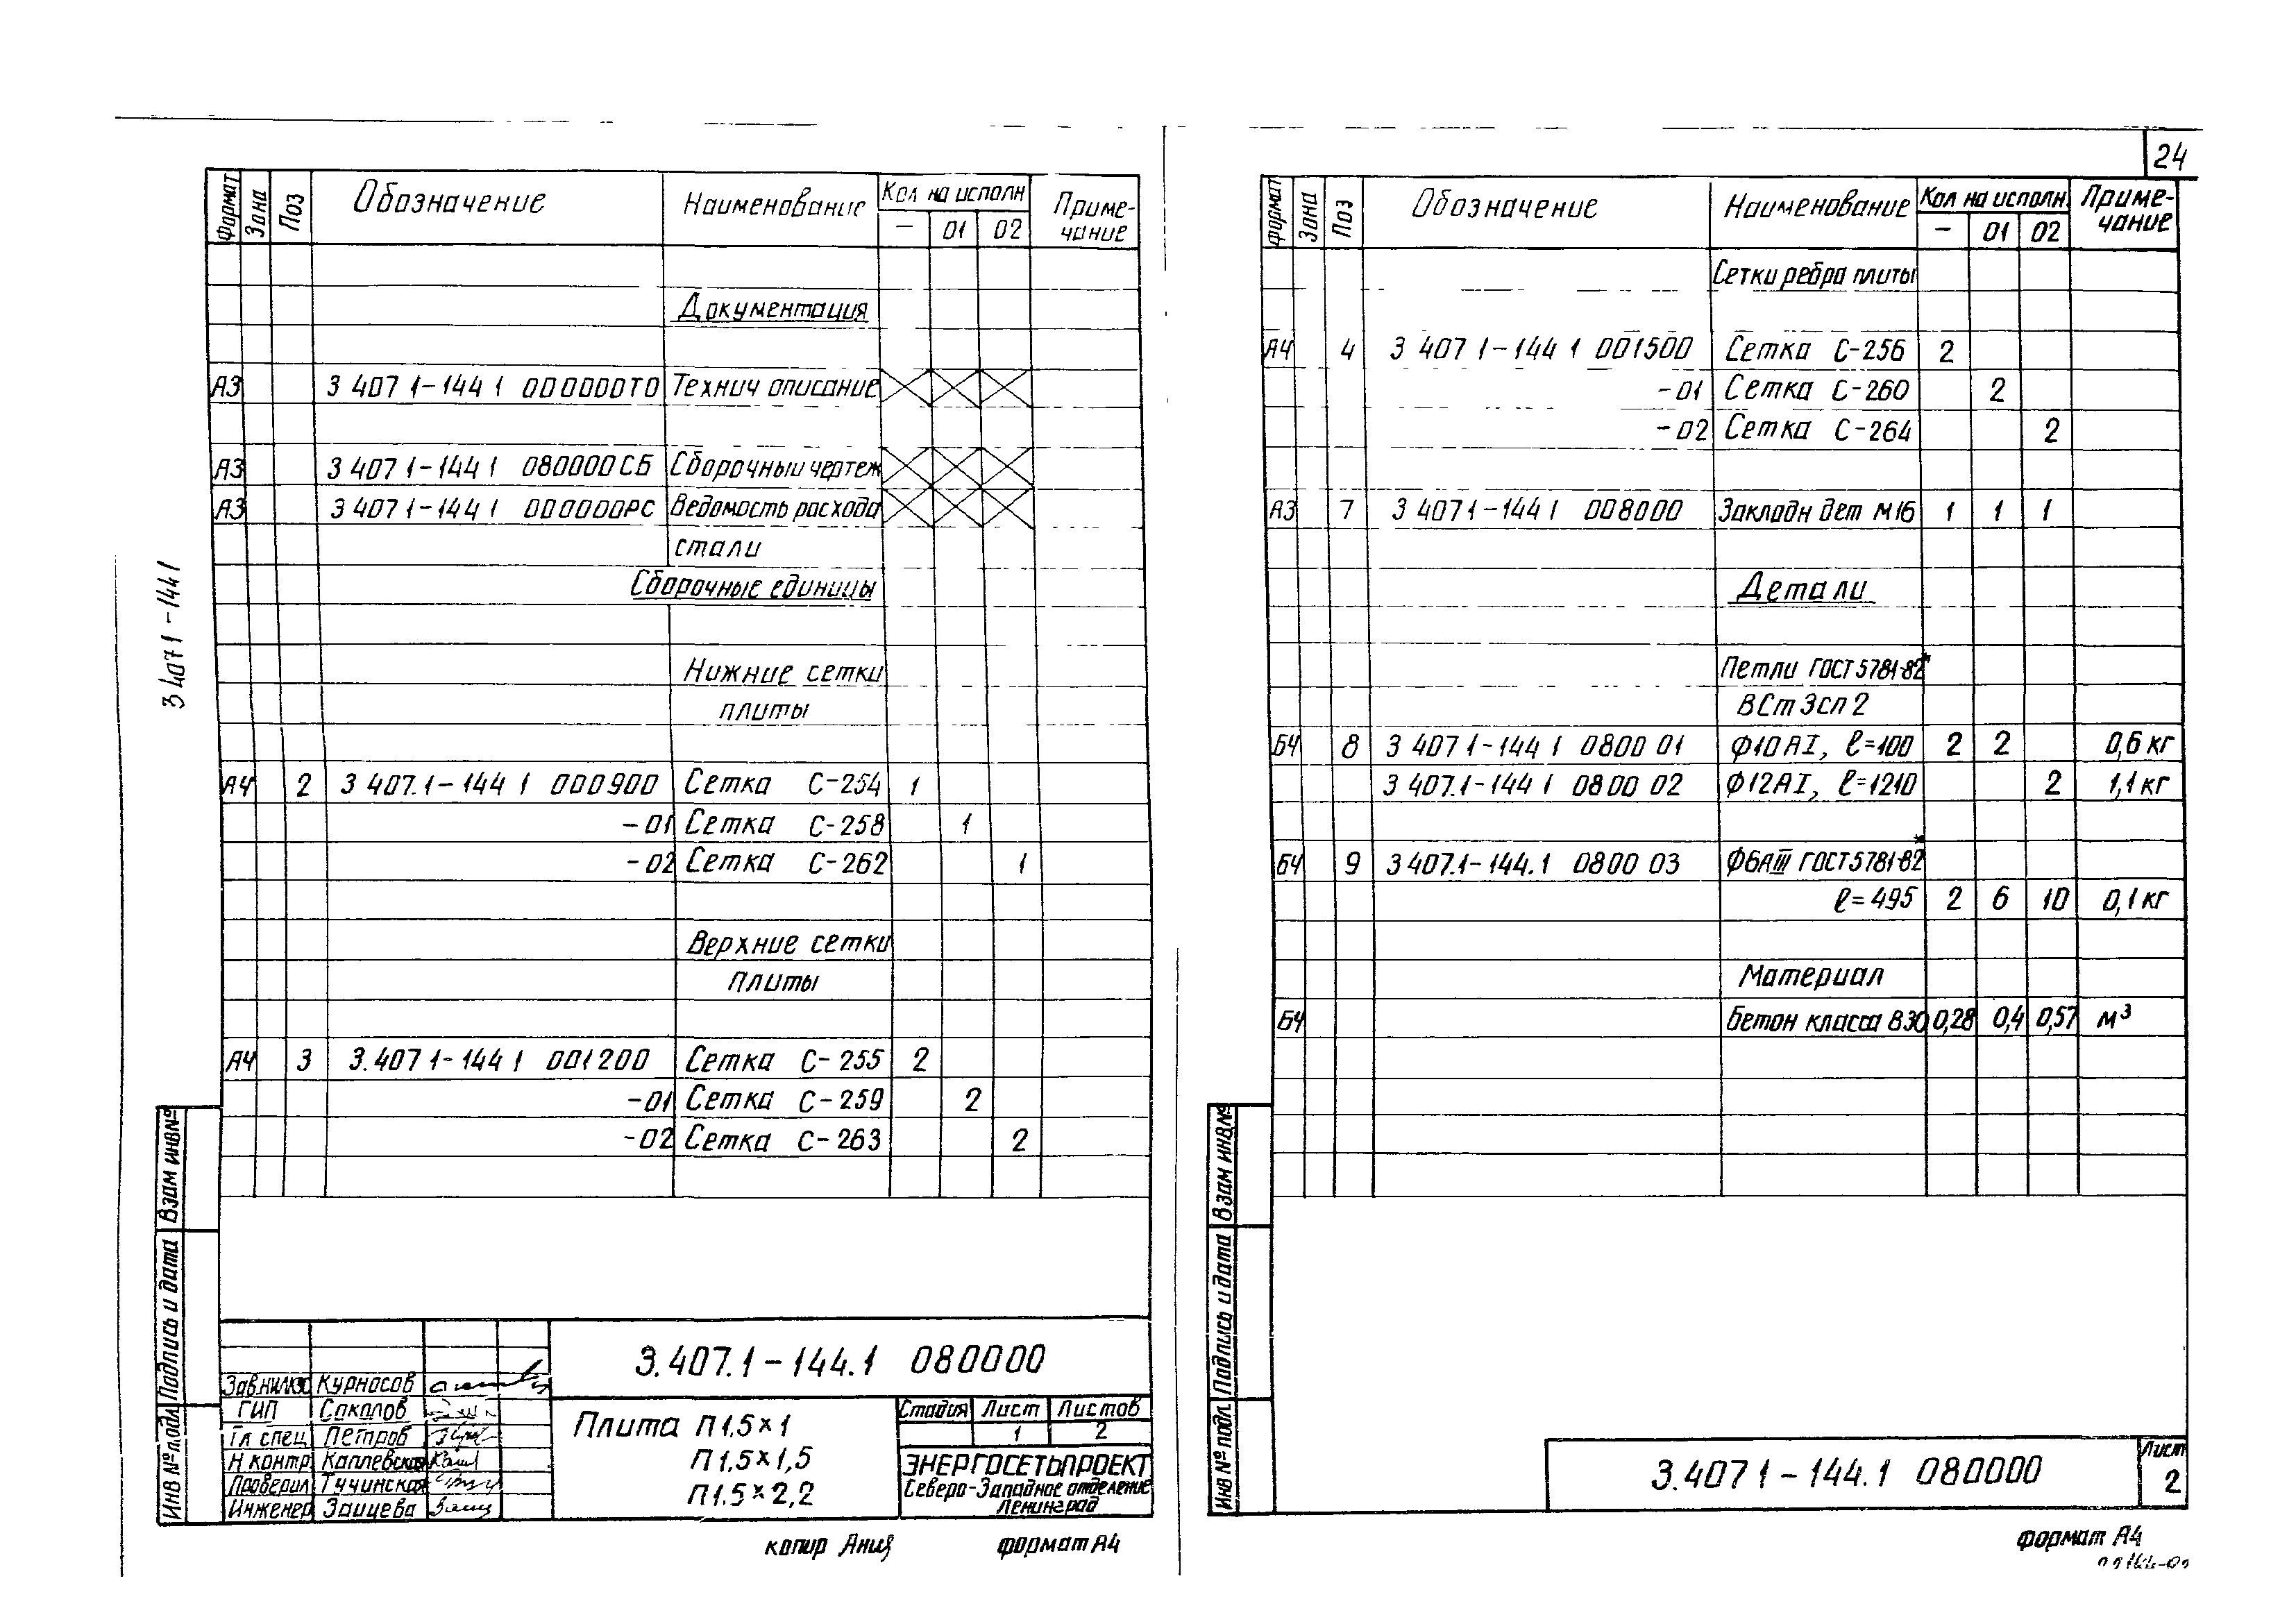 24
3 407 1-144 1
Формат Зона Поз Обозначение Наименование Кол на исполн Приме-
- 01 02 чание
Документация
А3 3 407 1-144 1 000000ТО Технич описание
А3 3 407 1-144 1 080000СБ Сборочный чертеж
А3 3 407 1-144 1 000000РС Ведомость расхода
стали
Сборочные единицы
Нижние сетки
плиты
А4 2 3 407.1-144 1 000900 Сетка С-254 1
-01 Сетка С-258 1
-02 Сетка С-262 1
Верхние сетки
плиты
А4 3 3.407 1-144 1 001200 Сетка С-255 2
-01 Сетка С-259 2
-02 Сетка С-263 2
Взам инв№
Подпись и дата
Инв № подл
3.407.1-144.1 080000
Зав.нилкэс Курносов
ГИП Соколов
Гл спец Петров
Н контр Каплевская
Проверил Тучинская
Инженер Зайцева
Плита П1.5×1
П1.5×1,5
П1.5×2,2
Стадия Лист Листов
1 2
ЭНЕРГОСЕТЬПРОЕКТ
Северо-Западное отделение
Ленинград
копир
формат А4
Формат Зона Поз Обозначение Наименование Кол на исполн Приме-
- 01 02 чание
Сетки ребра плиты
А4 4 3 407 1-144 1 001500 Сетка С-256 2
-01 Сетка С-260 2
-02 Сетка С-264 2
А3 7 3 407 1-144 1 008000 Закладн дет М16 1 1 1
Детали
Петли ГОСТ 5781-82*
ВСт3сп2
БЧ 8 3 407 1-144 1 0800 01 Ф10АI, ℓ=100 2 2 0,6 кг
3 407.1-144 1 0800 02 Ф12АI, ℓ=1210 2 1,1 кг
БЧ 9 3 407.1-144.1 0800 03 Ф6АIII ГОСТ 5781-82*
ℓ=495 2 6 10 0,1 кг
Материал
БЧ Бетон класса В30 0,28 0,4 0,57 м³
Взам инв№
Подпись и дата
Инв № подл.
3.407 1-144.1 080000
Лист
2
формат А4